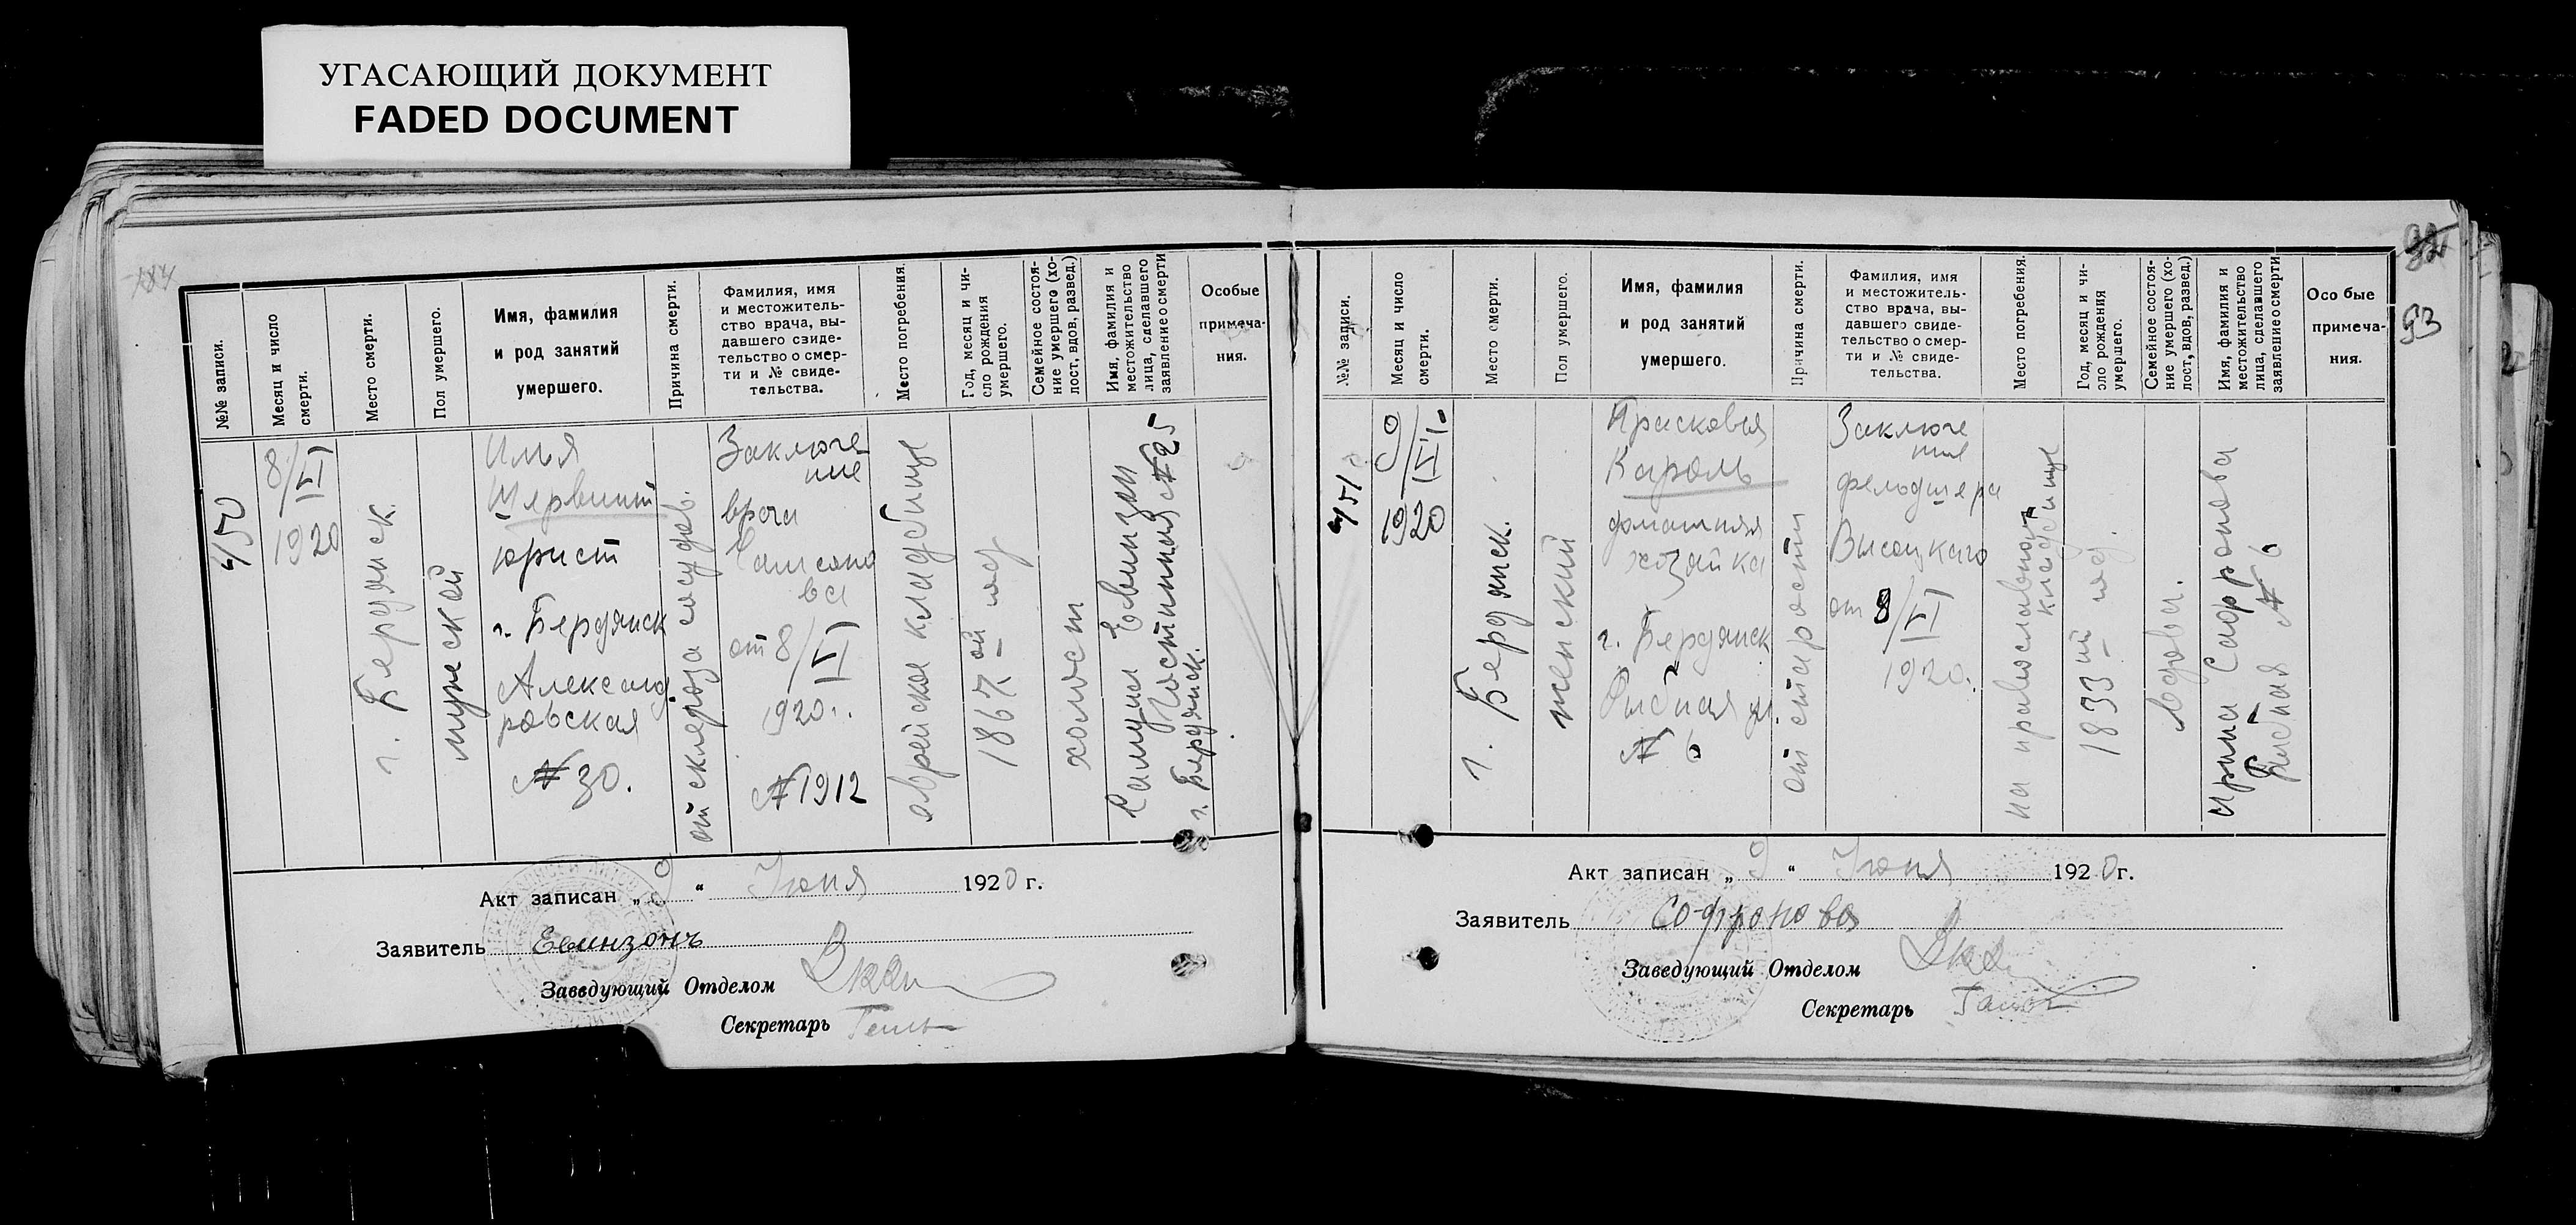 УГАСАЮЩИЙ ДОКУМЕНТ
FADED DOCUMENT
184
№№ записи.
Месяц и число
смерти.
Место смерти.
Пол умершего.
Имя, фамилия
и род занятий
умершего.
Причина смерти.
Фамилия, имя
и местожитель-
ство врача, вы-
давшего свиде-
тельство о смер-
ти и № свиде-
тельства.
Место погребения.
Год, месяц и чи-
сло рождения
умершего.
Семейное состоя-
ние умершего (хо-
лост, вдов, развед.)
Имя, фамилия и
местожительство
лица, сделавшего
заявление о смерти
Особые
примеча-
ния.
450
8/VI
1920
г. Бердянск.
мужеской
Илья
юрист
г. Бердянск
Александ
ровская
№ 30.
от склероза сосудов.
Заключе
ние
врача
от 8/VI
1920 г.
№ 1912
еврейское кладбище
1867 ой год
холост
Самуил Евинзон
Гостинная № 25
г. Бердянск.
Акт записан „9“ Июня 1920 г.
Заявитель Евинзонъ
Заведующий Отделом
Секретарь
93
№№ записи.
Месяц и число
смерти.
Место смерти.
Пол умершего.
Имя, фамилия
и род занятий
умершего.
Причина смерти.
Фамилия, имя
и местожитель-
ство врача, вы-
давшего свиде-
тельство о смер-
ти и № свиде-
тельства.
Место погребения.
Год, месяц и чи-
сло рождения
умершего.
Семейное состоя-
ние умершего (хо-
лост, вдов, развед.)
Имя, фамилия и
местожительство
лица, сделавшего
заявление о смерти
Осо бые
примеча-
ния.
451
9/VI
1920
г. Бердянск.
женский
Прасковья
Кароль
домашняя
хозяйка
г. Бердянск
Рыбная ул.
№ 6
от старости
Заключе
ние
фельдшера
Высоцкаго
от 8/VI
1920.
на православном
кладбище
1833 ий год.
вдова.
Ирина Сафронова
Рыбная № 6
Акт записан „9“ Июня 1920 г.
Заявитель Софронова
Заведующий Отделом
Секретарь